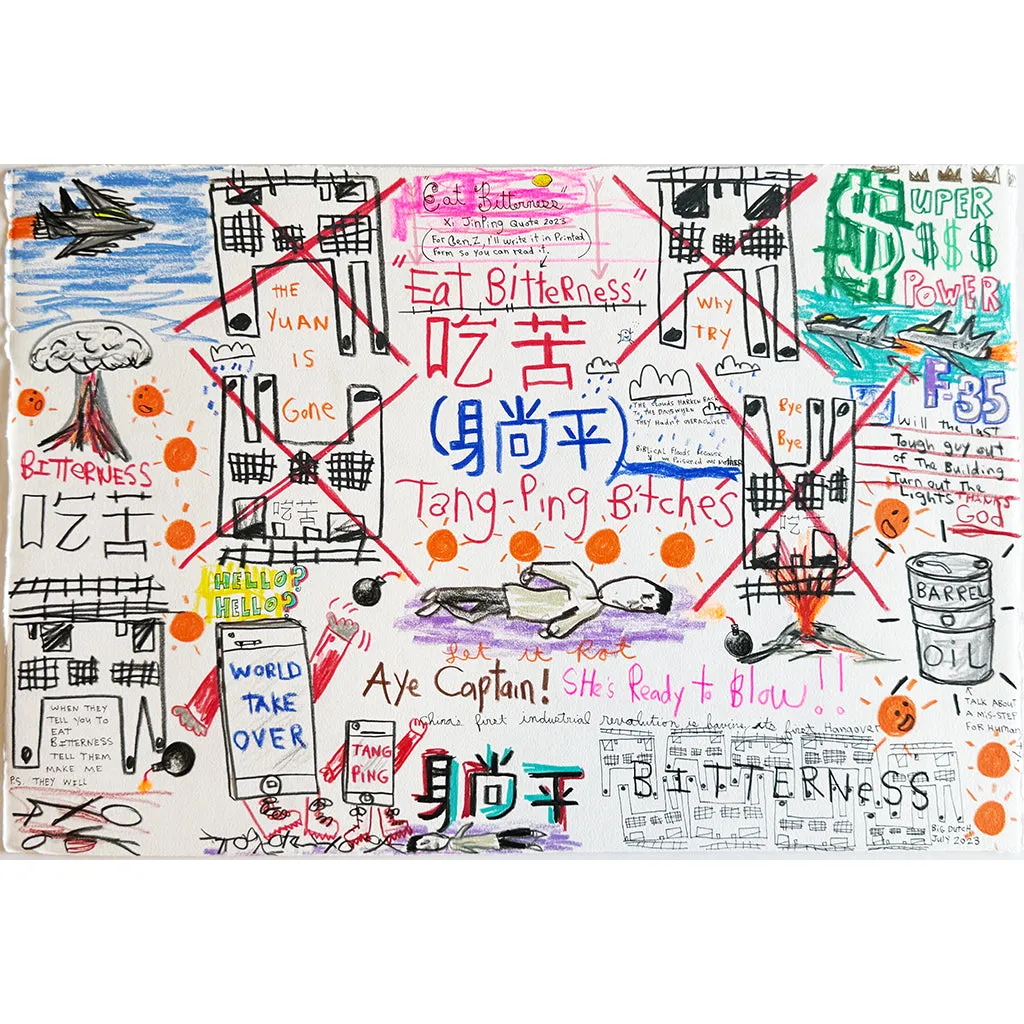 "Eat Bitterness"
Xi JinPing Quote 2023
(For Gen. Z, I'll write it in Printed
Form so you can read it.)
"Eat Bitterness"
吃苦
(躺平)
Tang-Ping Bitche's
THE
YUAN
IS
Gone
吃苦
WHY
TRY
Bye
Bye
吃
$UPER
$$$
POWER
F-35
F-35
Will The last
Tough guy out
of The Building
Turn out The
Lights THANKS
God
THE CLOUDS HARKEN BACK
TO THE DAYS WHEN
THEY HADN'T
BIBLICAL Floods because
we Poisoned
BITTERNESS
吃苦
HELLO?
HELLO?
WORLD
TAKE
OVER
TANG
PING
Let it Rot
Aye Captain! SHe's Ready to Blow!!
China's first industrial revolution is having its first Hangover
躺平
BARREL
OIL
TALK ABOUT
A MIS-STEP
FOR HUMAN
WHEN THEY
TELL YOU TO
EAT
BITTERNESS
TELL THEM
MAKE ME
PS. THEY WILL
BITTERNESS
BIG DUTCH
July 2023